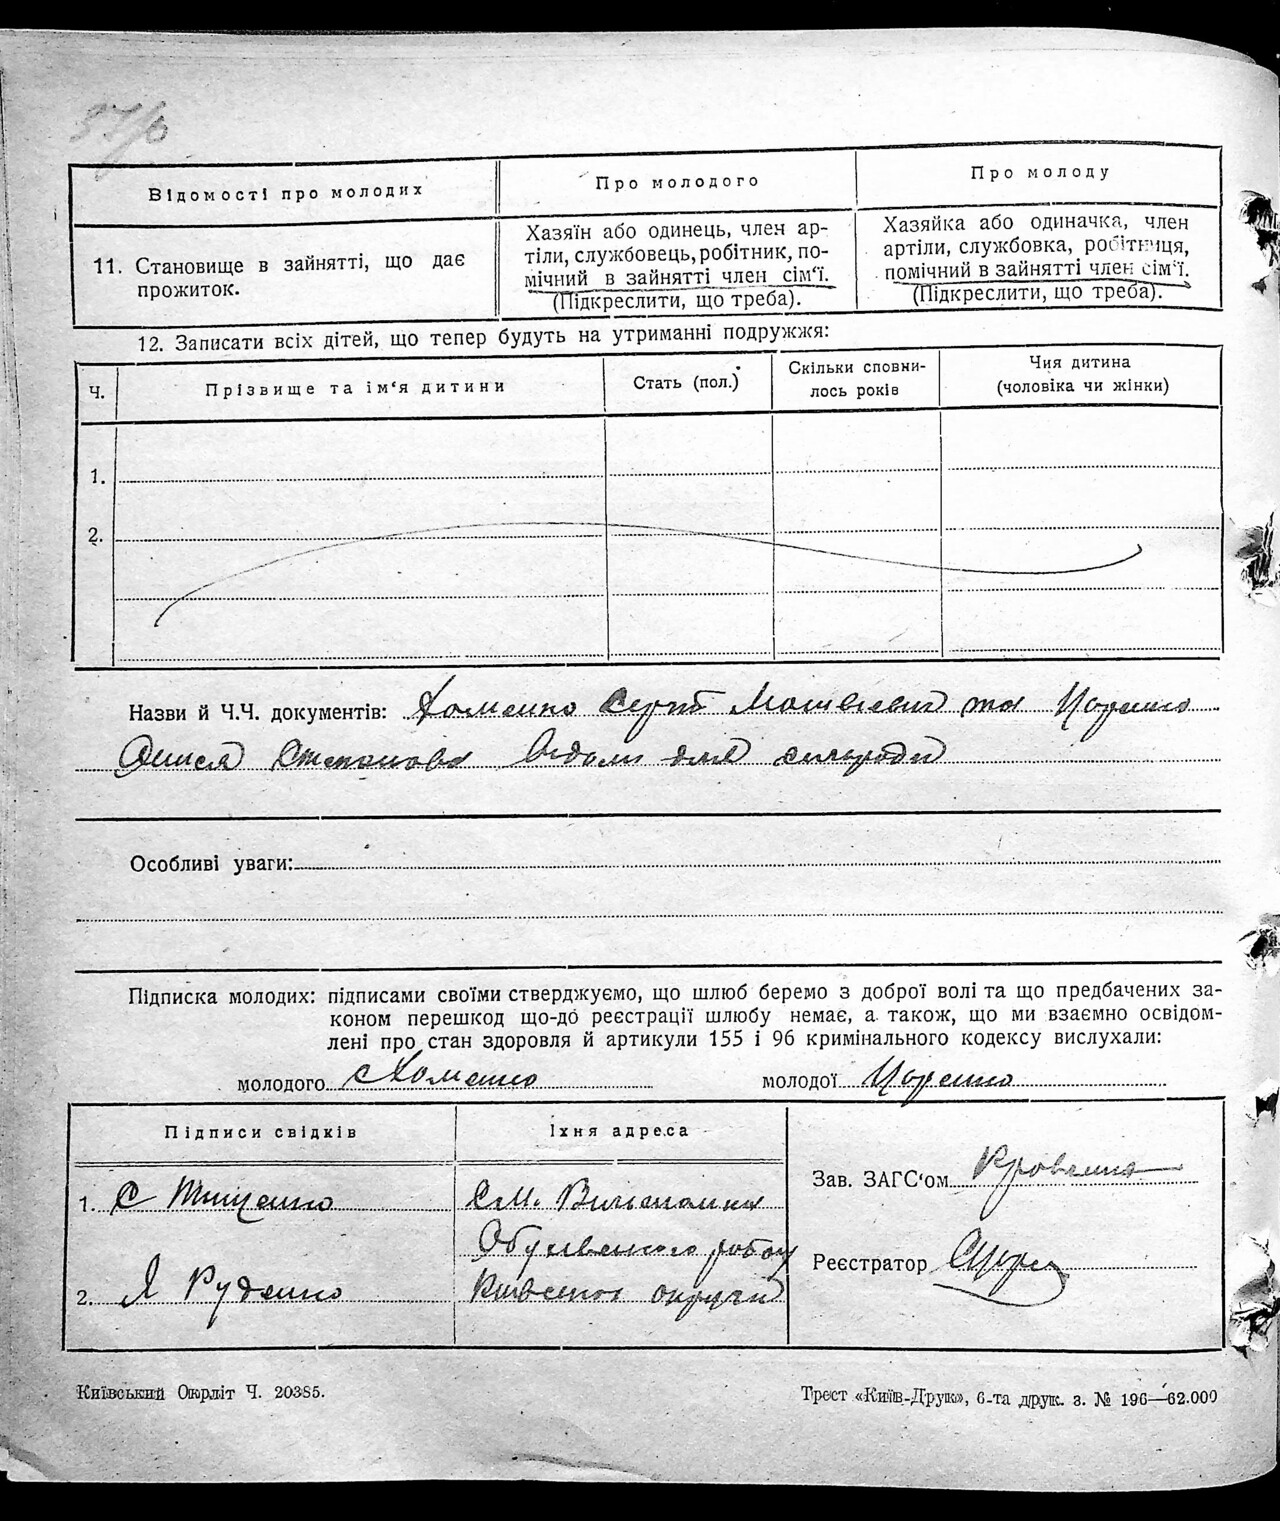 Відомості про молодих
Про молодого
Про молоду
11. Становище в зайнятті, що дає прожиток.
Хазяїн або одинець, член ар-
тілі, службовець, робітник, по-
мічний в зайнятті член сім'ї.
(Підкреслити, що треба).
Хазяйка або одиначка, член
артіли, службовка, робітниця,
помічний в зайнятті член сім'ї.
(Підкреслити, що треба).
12. Записати всіх дітей, що тепер будуть на утриманні подружжя:
Ч.
Прізвище та ім'я дитини
Стать (пол.)
Скільки сповни-
лось років
Чия дитина
(чоловіка чи жінки)
1.
2.
Назви й Ч.Ч. документів: Хоменко Сергій та Царенко
Степанова
Особливі уваги:
Підписка молодих: підписами своїми стверджуємо, що шлюб беремо з доброї волі та що предбачених за-
коном перешкод що-до реєстрації шлюбу немає, а також, що ми взаємно освідом-
лені про стан здоровля й артикули 155 і 96 кримінального кодексу вислухали:
молодого С Хоменко молодої Царенко
Підписи свідків
Їхня адреса
1. С Тищенко
См.
Обухівського району
2. Я Руденко
Київської округи
Зав. ЗАГС'ом
Реєстратор
Київський Окрліт Ч. 20385.
Трест «Київ-Друк», 6-та друк. з. № 196—62.000